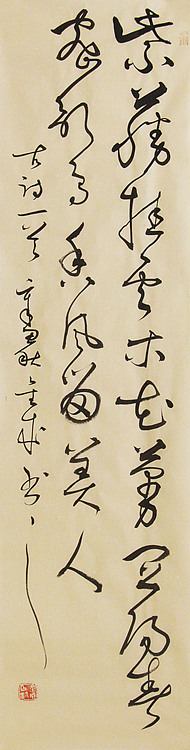 紫藤挂云木花蔓宜阳春
密歌鸟香风留美人
古诗一首 秋 书